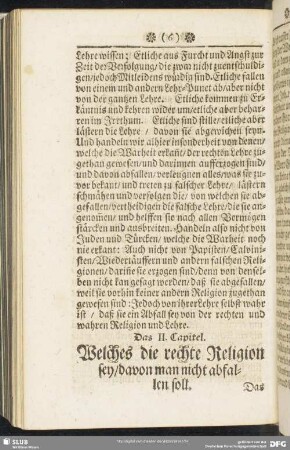 (6)
Lehre wissen: Etliche aus Furcht und Angst zur
Zeit der Verfolgung/ die zwar nicht zuentschuldi-
gen/ jedoch Mitleidens würdig sind. Etliche fallen
von einem und andern Lehr-Punct ab/ aber nicht
von der gantzen Lehre. Etliche kommen zu Er-
käntnis und kehren wider um/ etliche aber behar-
ren im Irrthum. Etliche sind stille/ etliche aber
lästern die Lehre / davon sie abgewichen seyn.
Und handeln wir alhier insonderheit von denen/
welche die Warheit erkant/ der rechten Lehre zu-
gethan gewesen/ und darinnen aufferzogen sind/
und davon abfallen/ verleugnen alles/ was sie zu-
vor bekant/ und treten zu falscher Lehre/ lästern
schmähen und verfolgen die/ von welchen sie ab-
gefallen/ vertheidigen die falsche Lehre/ die sie an-
genommen/ und helffen sie nach allen Vermögen
stärcken und ausbreiten. Handeln also nicht von
Juden und Türcken/ welche die Warheit noch
nie erkant: Auch nicht von Papisten/ Calvini-
sten/ Wiedertäuffern und andern falschen Reli-
gionen/ darinn sie erzogen sind/ denn von densel-
ben nicht kan gesagt werden/ daß sie abgefallen/
weil sie vorhin keiner andern Religion zugethan
gewesen sind: Jedoch von ihrer Lehr selbst wahr
ist / daß sie ein Abfall sey von der rechten und
wahren Religion und Lehre.
Das II. Capitel.
Welches die rechte Religion
sey/ davon man nicht abfal-
len soll.
Das